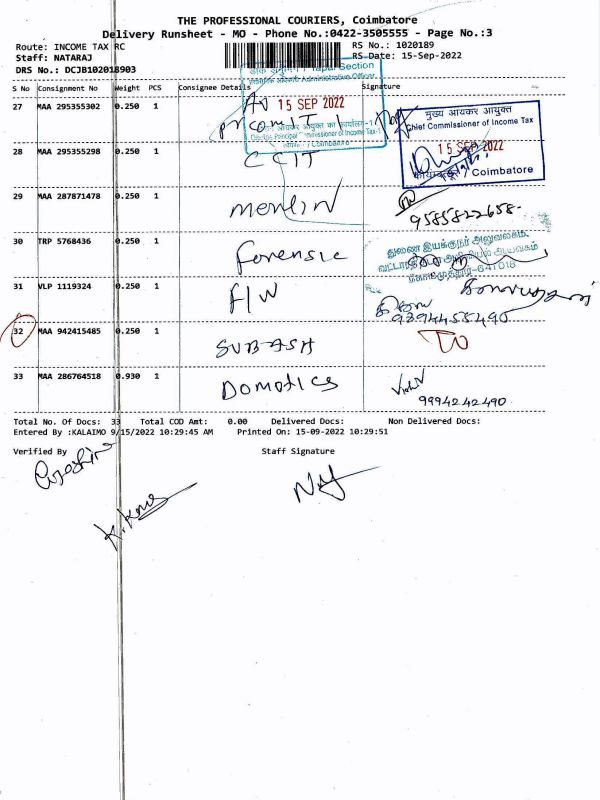 THE PROFESSIONAL COURIERS, Coimbatore
Delivery Runsheet - MO - Phone No.:0422-3505555 - Page No.:3
Route: INCOME TAX RC
RS No.: 1020189
Staff: NATARAJ
RS-Date: 15-Sep-2022
DRS No.: DCJB102018903
S No Consignment No Weight PCS Consignee Details Signature
Tapal Section
Administrative Officer
15 SEP 2022
27 MAA 295355302 0.250 1 Pr comIT 1
Principal Commissioner of Income Tax-1
Coimbatore
मुख्य आयकर आयुक्त
Chief Commissioner of Income Tax
15 SEP 2022
/ Coimbatore
28 MAA 295355298 0.250 1 CCIT
29 MAA 287871478 0.250 1 Merlin
9585822658-
30 TRP 5768436 0.250 1 Forensic
துணை இயக்குநர் அலுவலகம்,
கோயமுத்தூர்-641018
31 VLP 1119324 0.250 1 F/W
9394455490
32 MAA 942415485 0.250 1 SUBASH
33 MAA 286764518 0.930 1 DOMOTICS
9994242490.
Total No. Of Docs: 33 Total COD Amt: 0.00 Delivered Docs: Non Delivered Docs:
Entered By :KALAIMO 9/15/2022 10:29:45 AM Printed On: 15-09-2022 10:29:51
Verified By Staff Signature